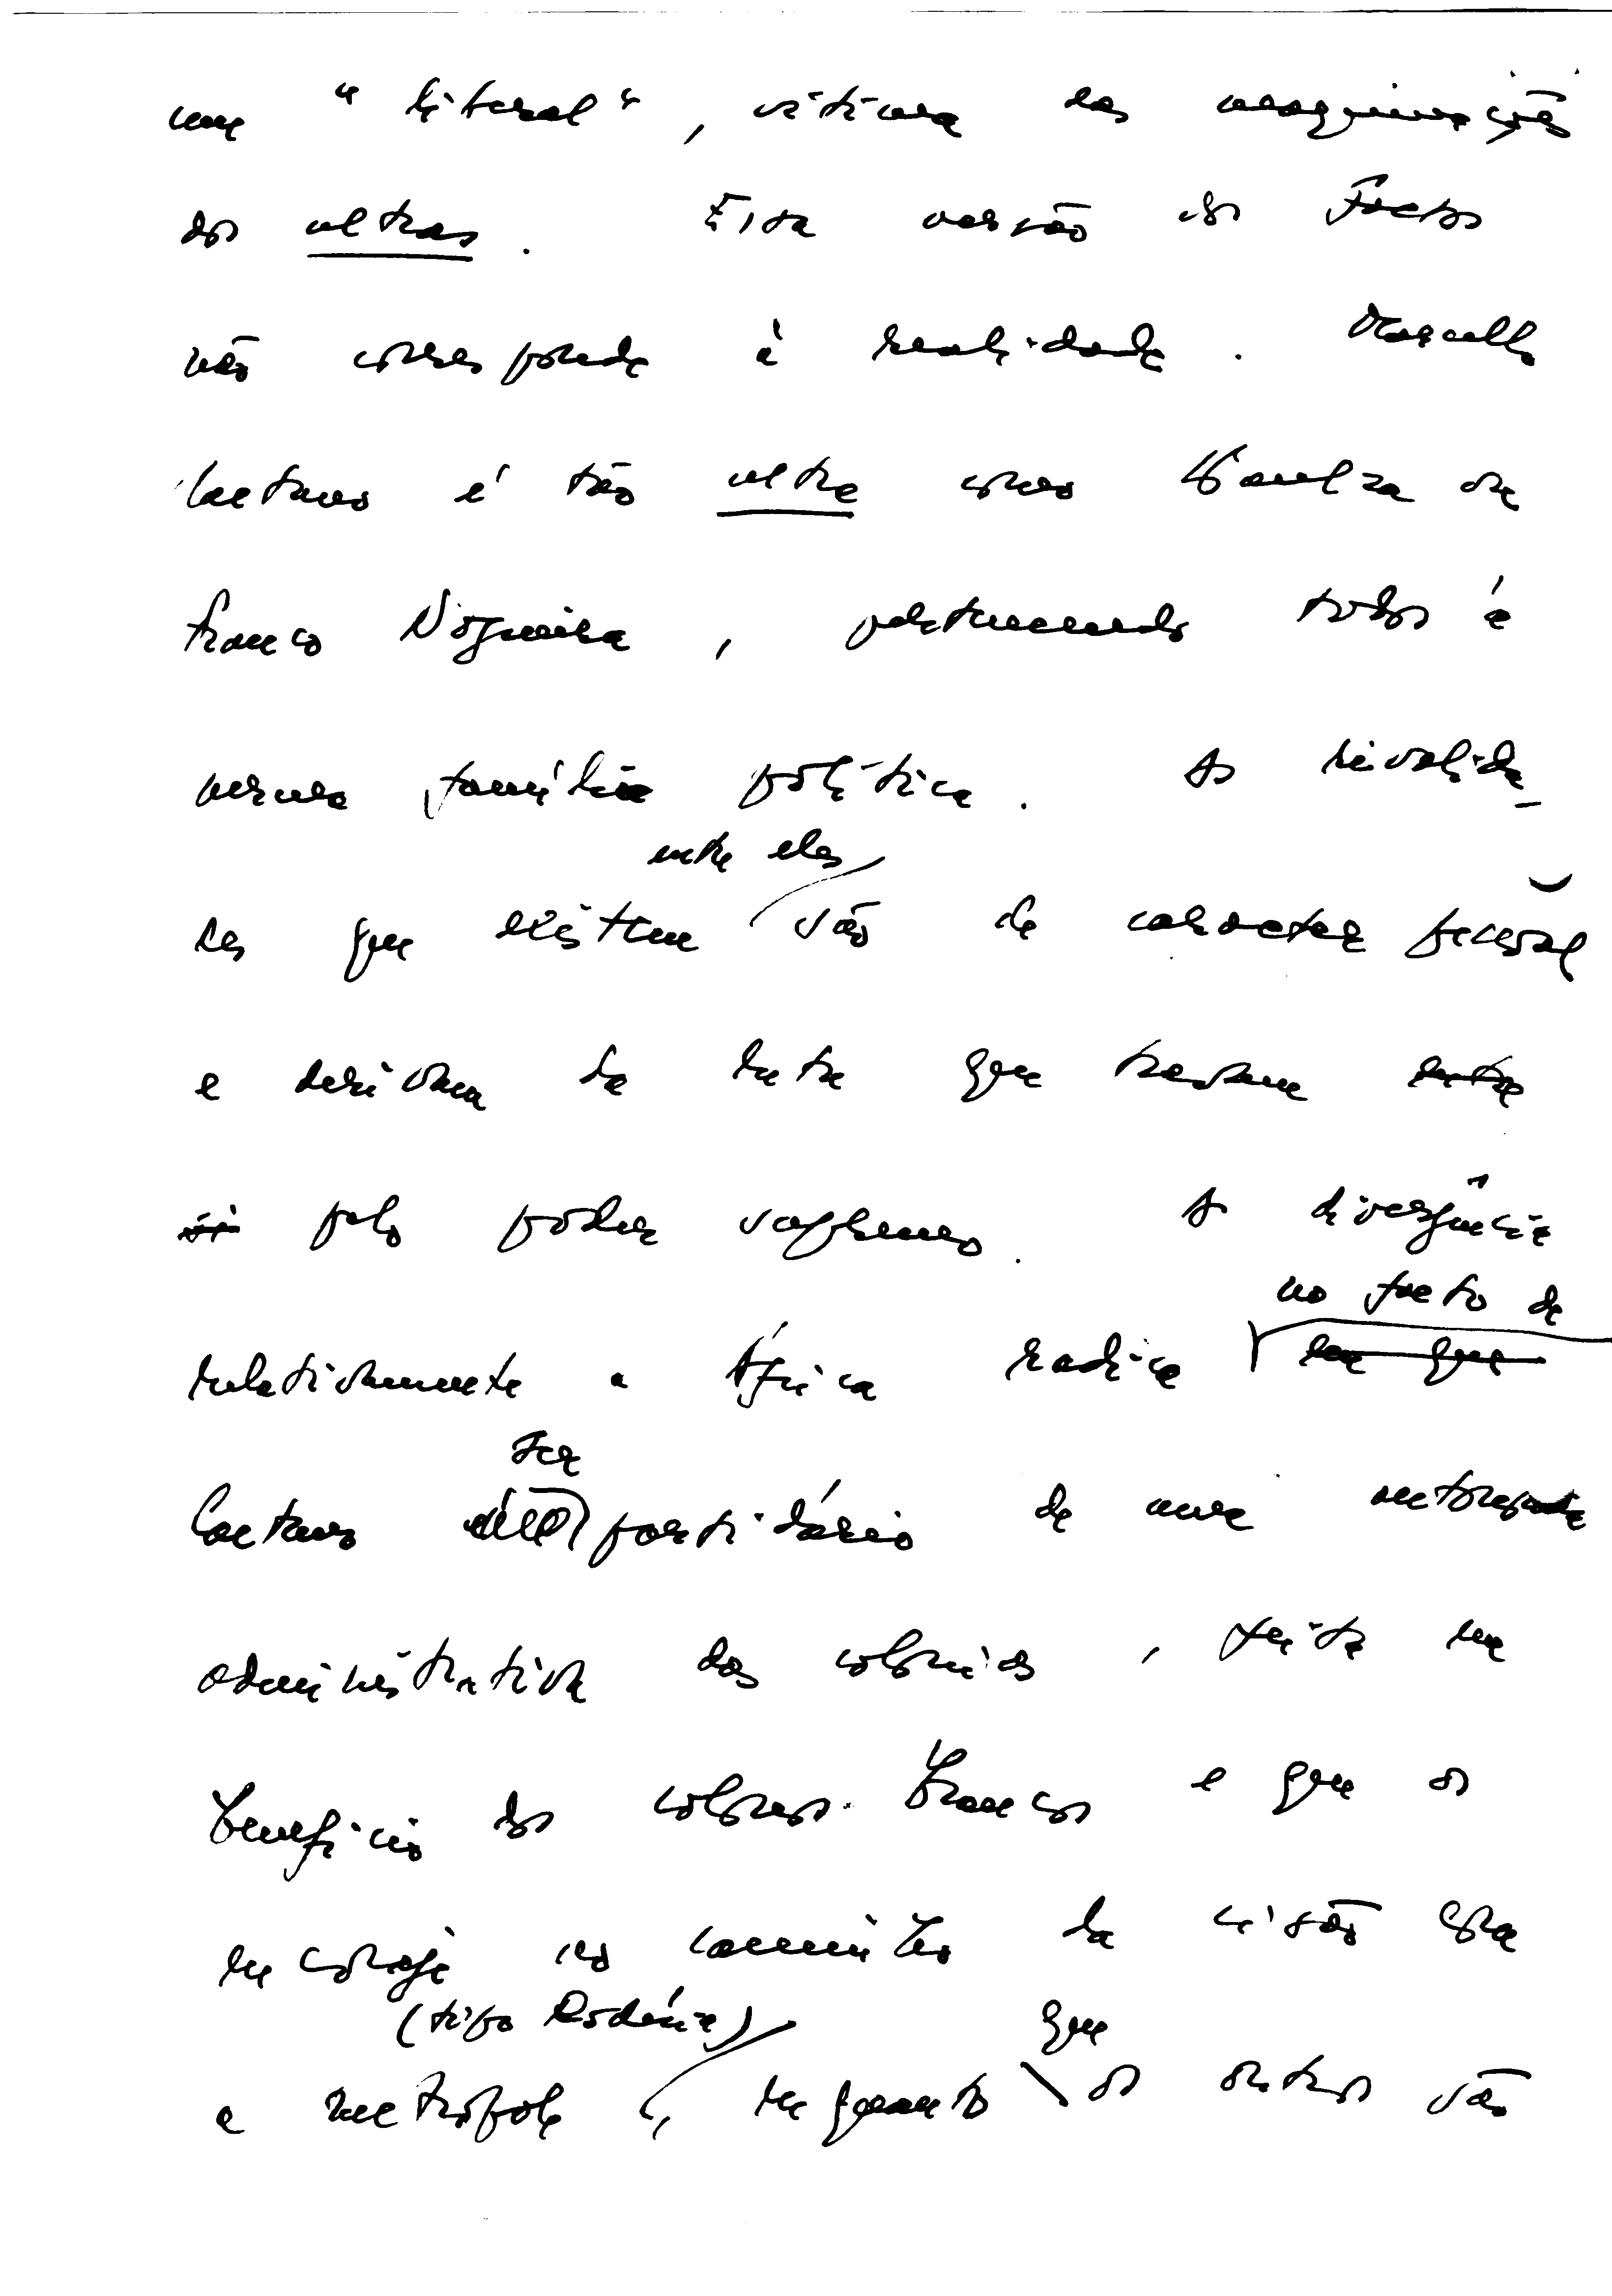 um "liberal", vítima das maquinações
dos ultras. Esta versão dos factos
não corresponde à realidade. Marcello
Caetano é tão ultra como Kaulza ou
Franco Nogueira, pertencendo todos à
mesma família política. As rivalida-
entre eles
des que existem são de caracter pessoal
e derivam da luta que travam entre
si pelo poder supremo. A divergência
no facto de
relativamente a África radica em que
ser
Caetano partidário de uma autonomia
administrativa das colónias, feita em
benefício dos colonos brancos e que os
encoraje no caminho da cisão com
(tipo Rodésia) que
a metrópole, enquanto os outros são